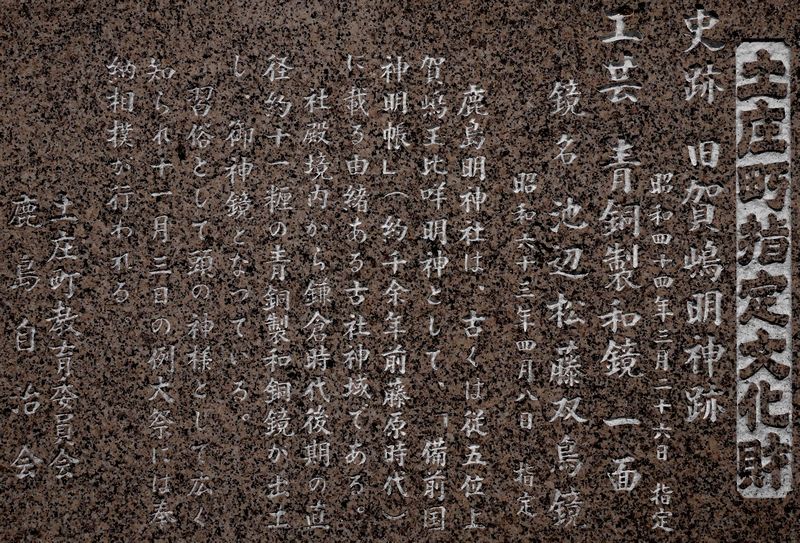 土庄町指定文化財
史跡 旧賀嶋明神跡
昭和四十四年三月二十六日 指定
工芸 青銅製和鏡 一面
鏡名 池辺松藤双鳥鏡
昭和六十三年四月八日 指定
鹿島明神社は、古くは従五位上
賀嶋王比咩明神として、「備前国
神明帳」(約千余年前藤原時代)
に載る由緒ある古社神域である。
社殿境内から鎌倉時代後期の直
径約十一糎の青銅製和銅鏡が出土
し、御神鏡となっている。
習俗として頭の神様として広く
知られ十一月三日の例大祭には奉
納相撲が行われる
土庄町教育委員会
鹿島自治会